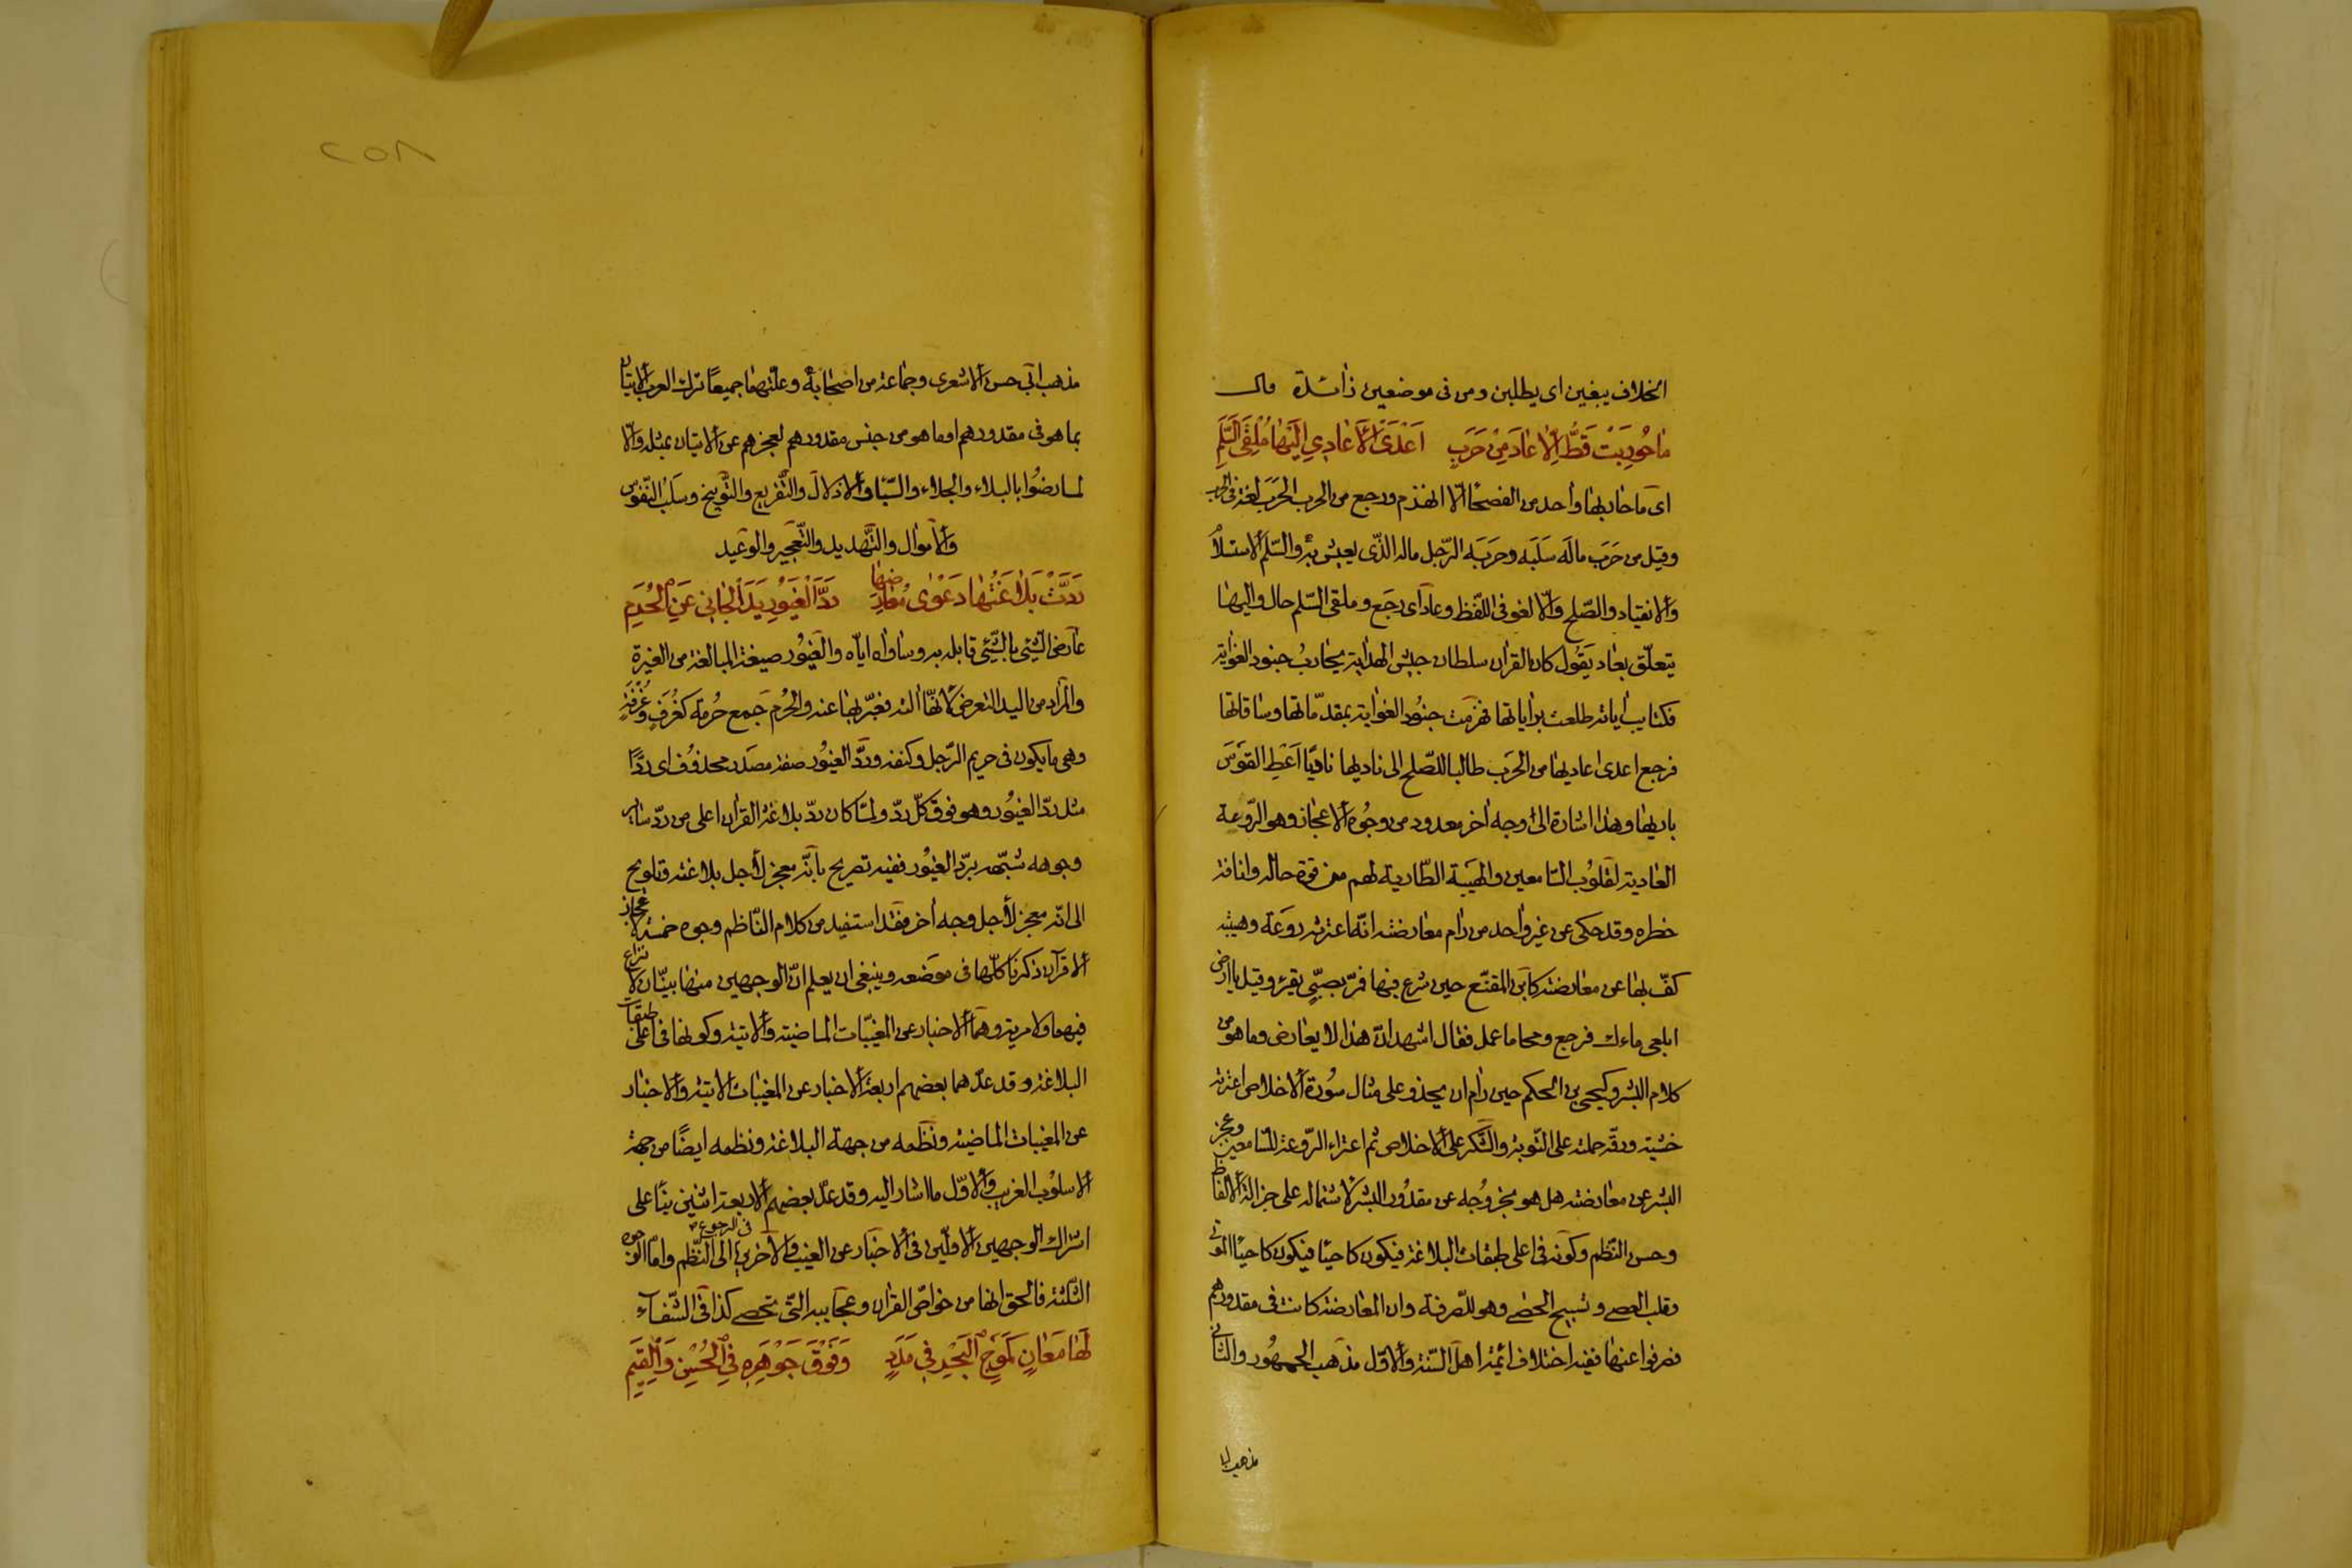 الخلاف يبغين اى يطلبن ومن فى موضعين زائدة قال
مَا حُورِبَتْ قَطُّ اِلَّا عَادَ مِنْ حَرَبٍ اَعْدَى الْاَعَادِي اِلَيْهَا مُلْقِيَ السَّلَمِ
اى ما حاربها واحد من الفصحا الا انهزم ورجع من الحرب الحرَب لغة فى الحرب
وقيل من حَرَب مالَه سَلَبَه وحَرَبَه الرّجل ماله الذّى يعيش به والسّلَم الاستلام
والانقياد والصّلح والّا لغو فى اللّفظ وعاد اى رجَع وملقى السّلم حال واليها
يتعلّق بعاد يَقُول كان القران سلطان جيش الهداية يحارب جنود الغواية
فكتايب اياته طلعت براياتها فهزمت جنود الغواية بمقدّماتها وساقاتها
فرجع اعدى اعاديها من الحَرَب طالبا للصّلح الى ناديها ناديًا اَعْطِ القَوْسَ
باريها وهذا اشارة الى وجه اخر معدود من وجُوه الاعجاز وهو الرّوعة
العادية لقلوُب السّامعين والهَيبة الطّارية لهم من قوة حاله وانافة
خطره وقد حكى عن غير واحد من رام معارضته انّه اعترته روعَة وهيبة
كفّ بها عن معارضته كابن المقنّع حين شرع فيها فمرّ بصبّى يقرء وقيل يا ارض
ابلعى ماءك فرجع ومحا ما عمل فقال اشهد انّ هذا لا يعارض وما هو من
كلام البشر وكيحيى بن الحكم حين رام ان يحذو على مثال سُورة الاخلاص اعترته
خشية ورقّة حملته على التّوبة والشّكر على الاخلاص ثم اعتراء الرّوعة للسّامعين وعجز
البشر عن معارضته هل هو بخروُجه عن مقدُور البشر لاشتماله على جزالة الالفاظ
وحسن النّظم وكونه فى اعلى طبقات البلاغة فيكون كاحيًا فيكون كاحيًا الموتى
وقلب العصى وتسبيح الحصى وهو للصّرفة وان المعارضة كانت فى مقدورهم
فصرفوا عنها ففيه اختلاف ائمة اهل السّنة والاوّل مذهب الجمهُور والثانى
مذهب ابى
٢٥٨
مذهب ابى حسن الاشعرى وجماعة من اصحابه وعلّتهما جميعًا ترك العرب الاتيان
بما هو فى مقدورهم او ما هو من جنس مقدورهم لعجزهم عن الاتيان بمثله والّا
لما رضوُا بالبلاء والجلاء والسّبا والاذلال والتّقريع والتّوبيخ وسَلب النّفوس
والاموال والتّهديد والتّعجيز والوعيد
رَدَّتْ بَلَاغَتُهَا دَعْوٰى مُعَارِضِهَا رَدَّ الْغَيُورِ يَدَ الْجَانِي عَنِ الْحُرَمِ
عارض الشّئ بالشّئ قابله به وساواه ايّاه والغيُور صيغة المبالغة من الغيرة
والمراد من اليد التعرض لانّها آلته فعبّر بها عنه والحُرم جَمع حُرمة كغُرَفٍ وَغُرْفَةٍ
وهى ما يكون فى حريم الرّجل وكنفه وردَّ الغيُور صفة مصدَر محذوف اى ردًّا
مثل ردّ الغيُور وهو فوق كلّ ردّ ولمّا كان ردّ بلاغة القران اعلى من ردّ ساير
وجوهه شبّهه بردّ الغيُور ففيه تصريح بانّه معجز لأجل بلاغته وتلويح
الى انّه معجز لأجل وجه اخر فقد استفيد من كلام النّاظم وجوه خمسة لاعجاز
القرآن ذكرنا كلّها فى موضَعه وينبغى ان يعلم انّ الوجهين منها بيّنان لا نزاع
فيهما ولا مرية وهما الاخبار عن المغيّبات الماضية والاتية وكونها فى اعلى طبقات
البلاغة وقد عدّهما بعضهم اربعة الاخبار عن المغيبات الاتية والاخبار
عن المغيبات الماضية ونَظمه من جهة البلاغة ونظمه ايضًا من جهة
الاسلوُب الغريب والاوّل ما اشار اليه وقد عدّ بعضهم الاربعة اثنين بنًا على
اشتراك الوجهين الاوّلين فى الاخبار عن الغيب والاخرين فى الرجوع الى النّظم وامّا الوجوه
الثّلثة فالحق انها من خواصّ القران وعجايبه التّى تحصى كذا فى الشّفاء
لَهَا مَعَانٍ كَمَوْجِ الْبَحْرِ فِي مَدَدٍ وَفَوْقَ جَوْهَرِهِ فِي الْحُسْنِ وَالْقِيَمِ